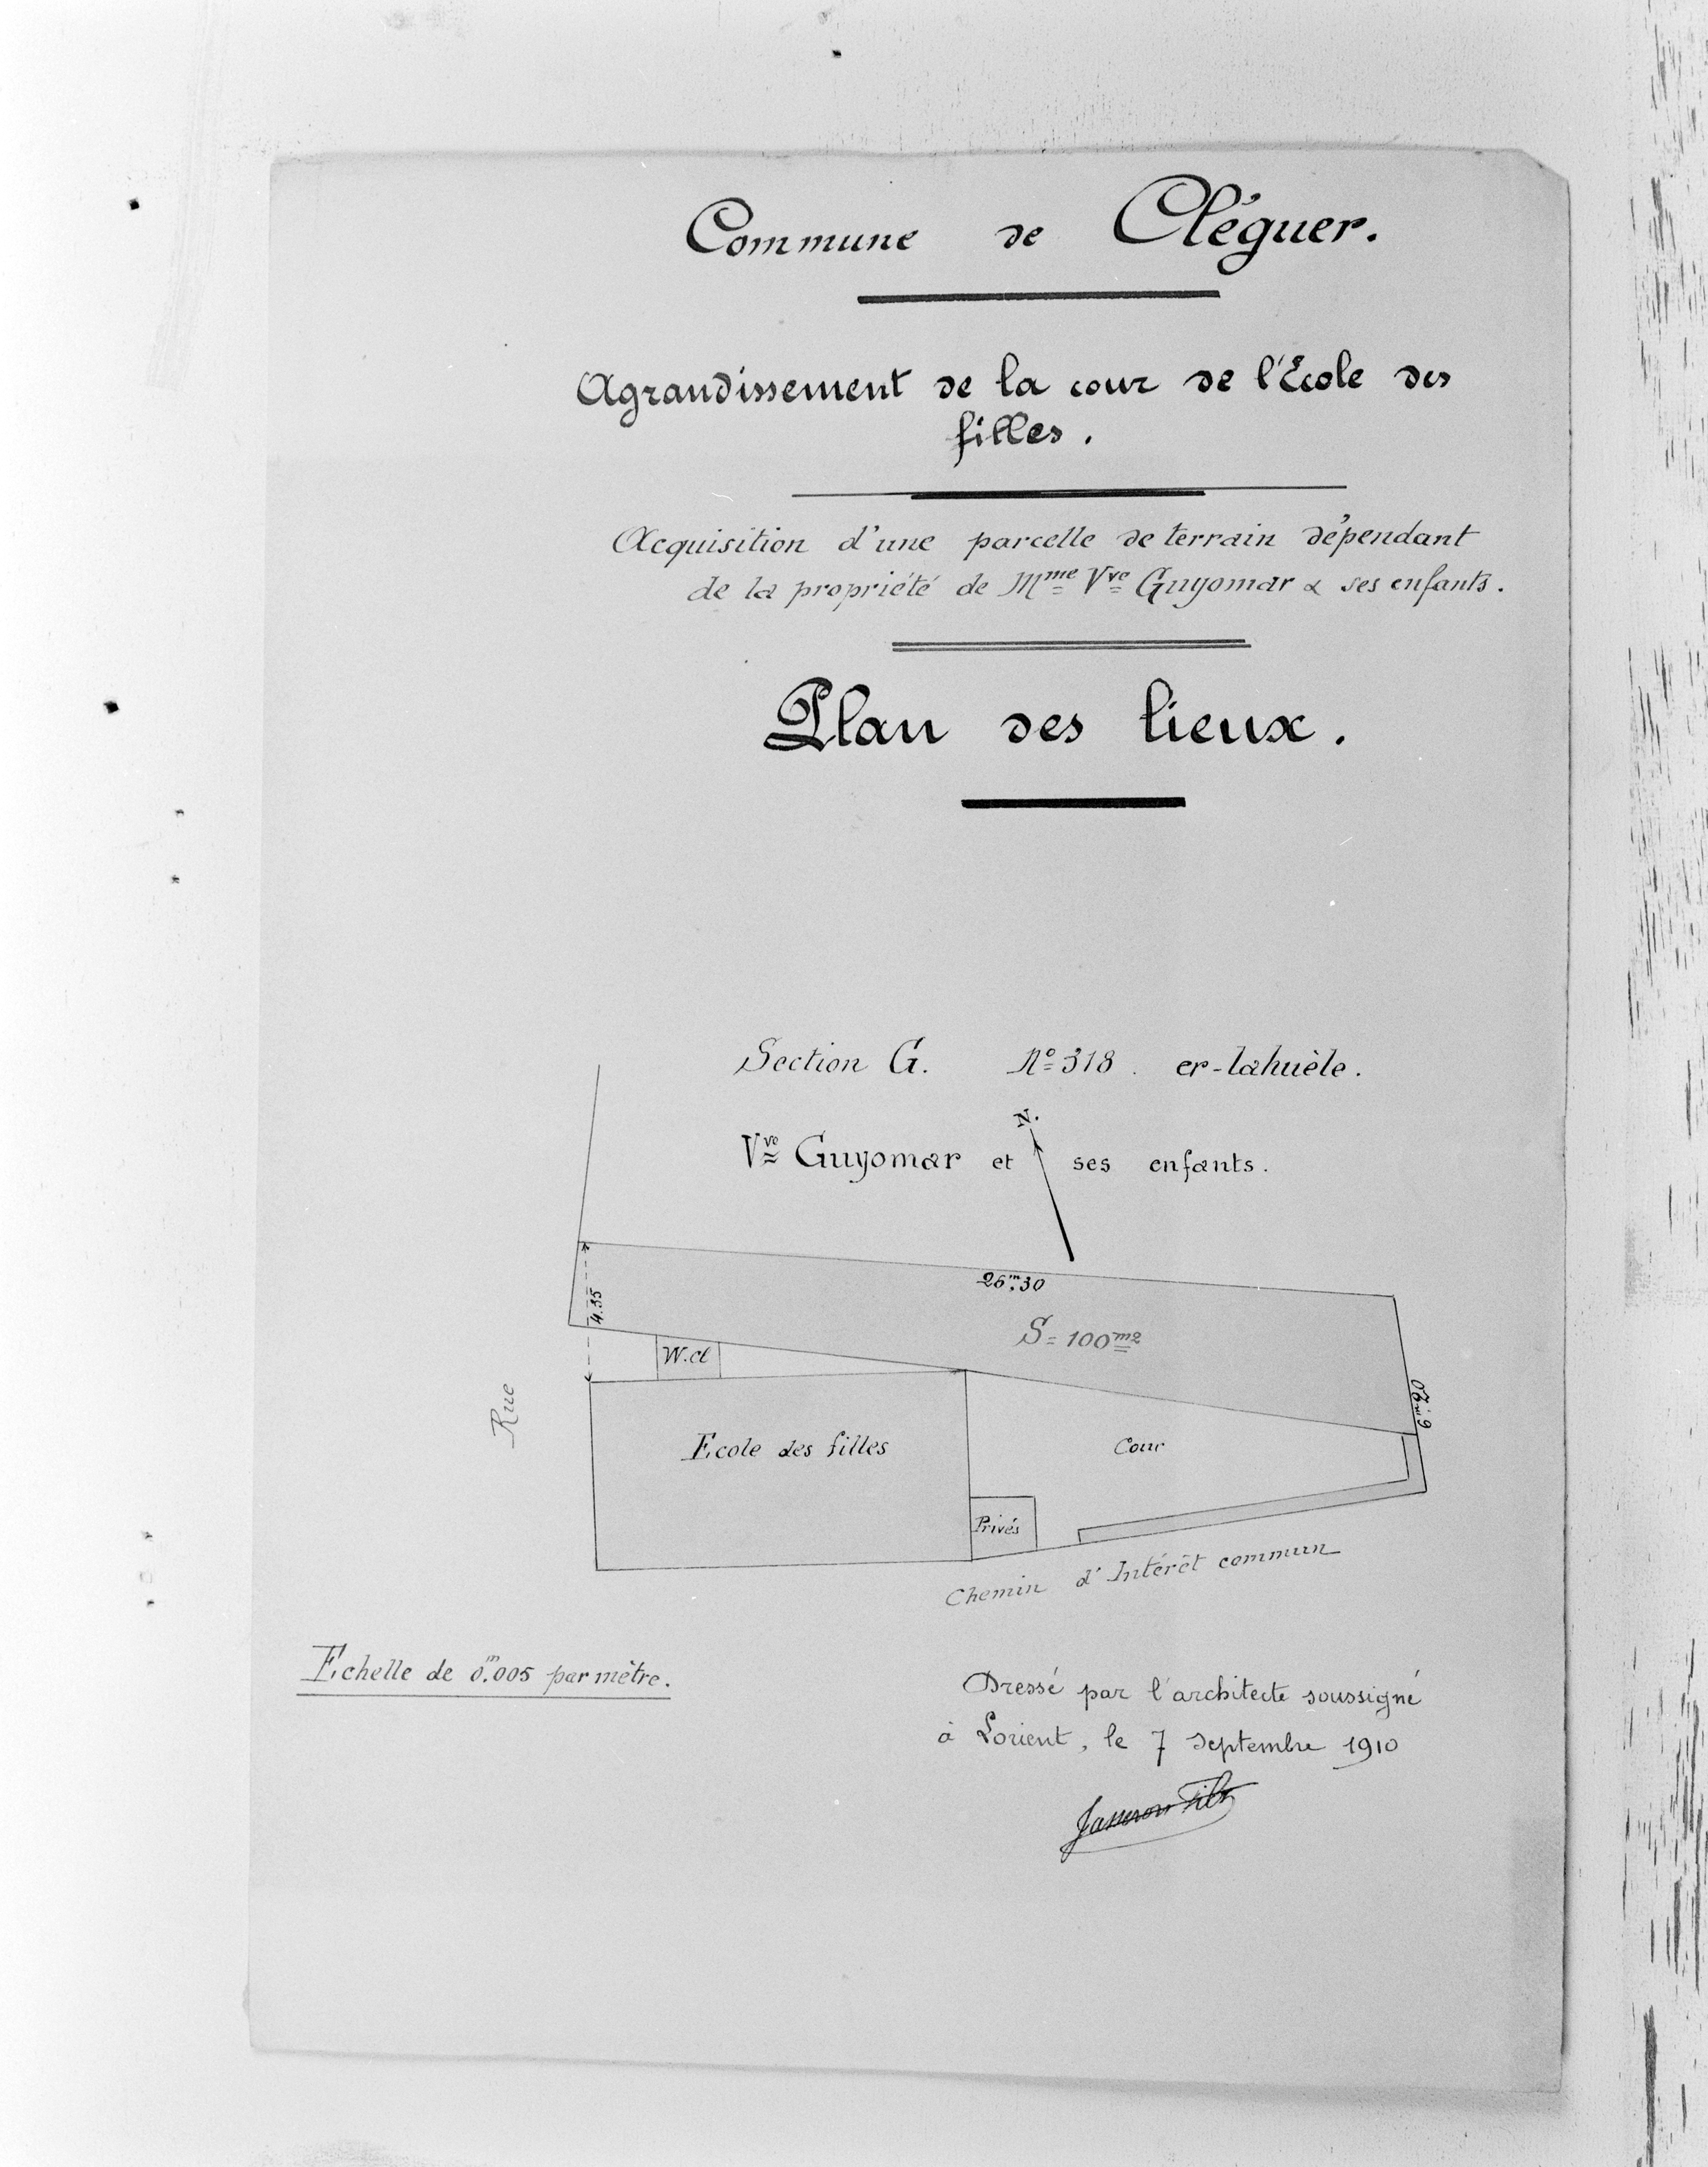 Commune de Cléguer.
Agrandissement de la cour de l'Ecole des
filles.
Acquisition d'une parcelle de terrain dépendant
de la propriété de Mme Vve Guyomar & ses enfants.
Plan des lieux.
Section G. No 318. er-lahuèle.
N.
Vve Guyomar et ses enfants.
26m,30
4.35
S = 100m2
W.cl
Rue
Ecole des filles
Cour
Privés
Chemin d'Intérêt commun
Echelle de 0m.005 par mètre.
Dressé par l'architecte soussigné
à Lorient, le 7 Septembre 1910